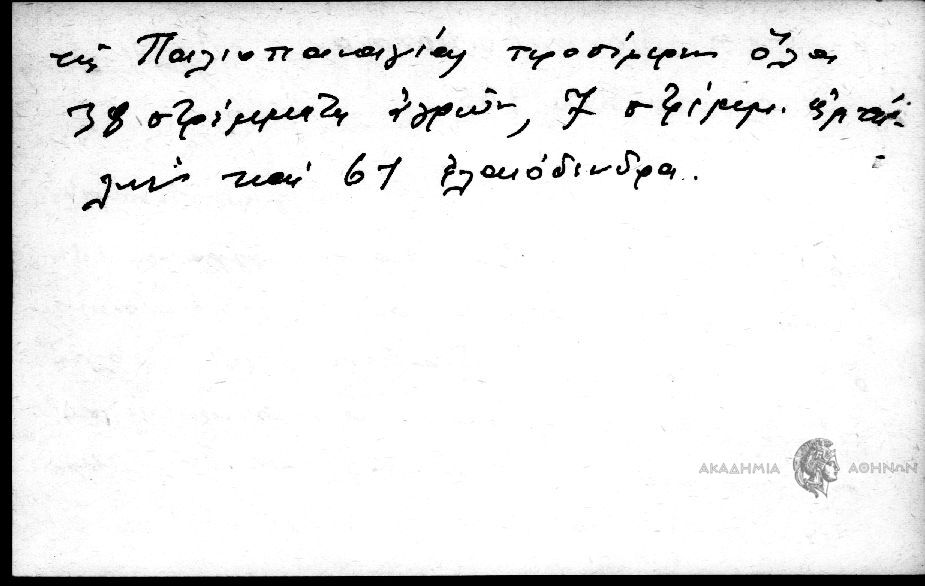 τῆς Παλιοπαναγίας προσέφερε ὅλα
38 στρέμματα ἀγρῶν, 7 στρέμμ. ἀμπέ-
λων καί 61 ἐλαιόδενδρα.
ΑΚΑΔΗΜΙΑ ΑΘΗΝΩΝ